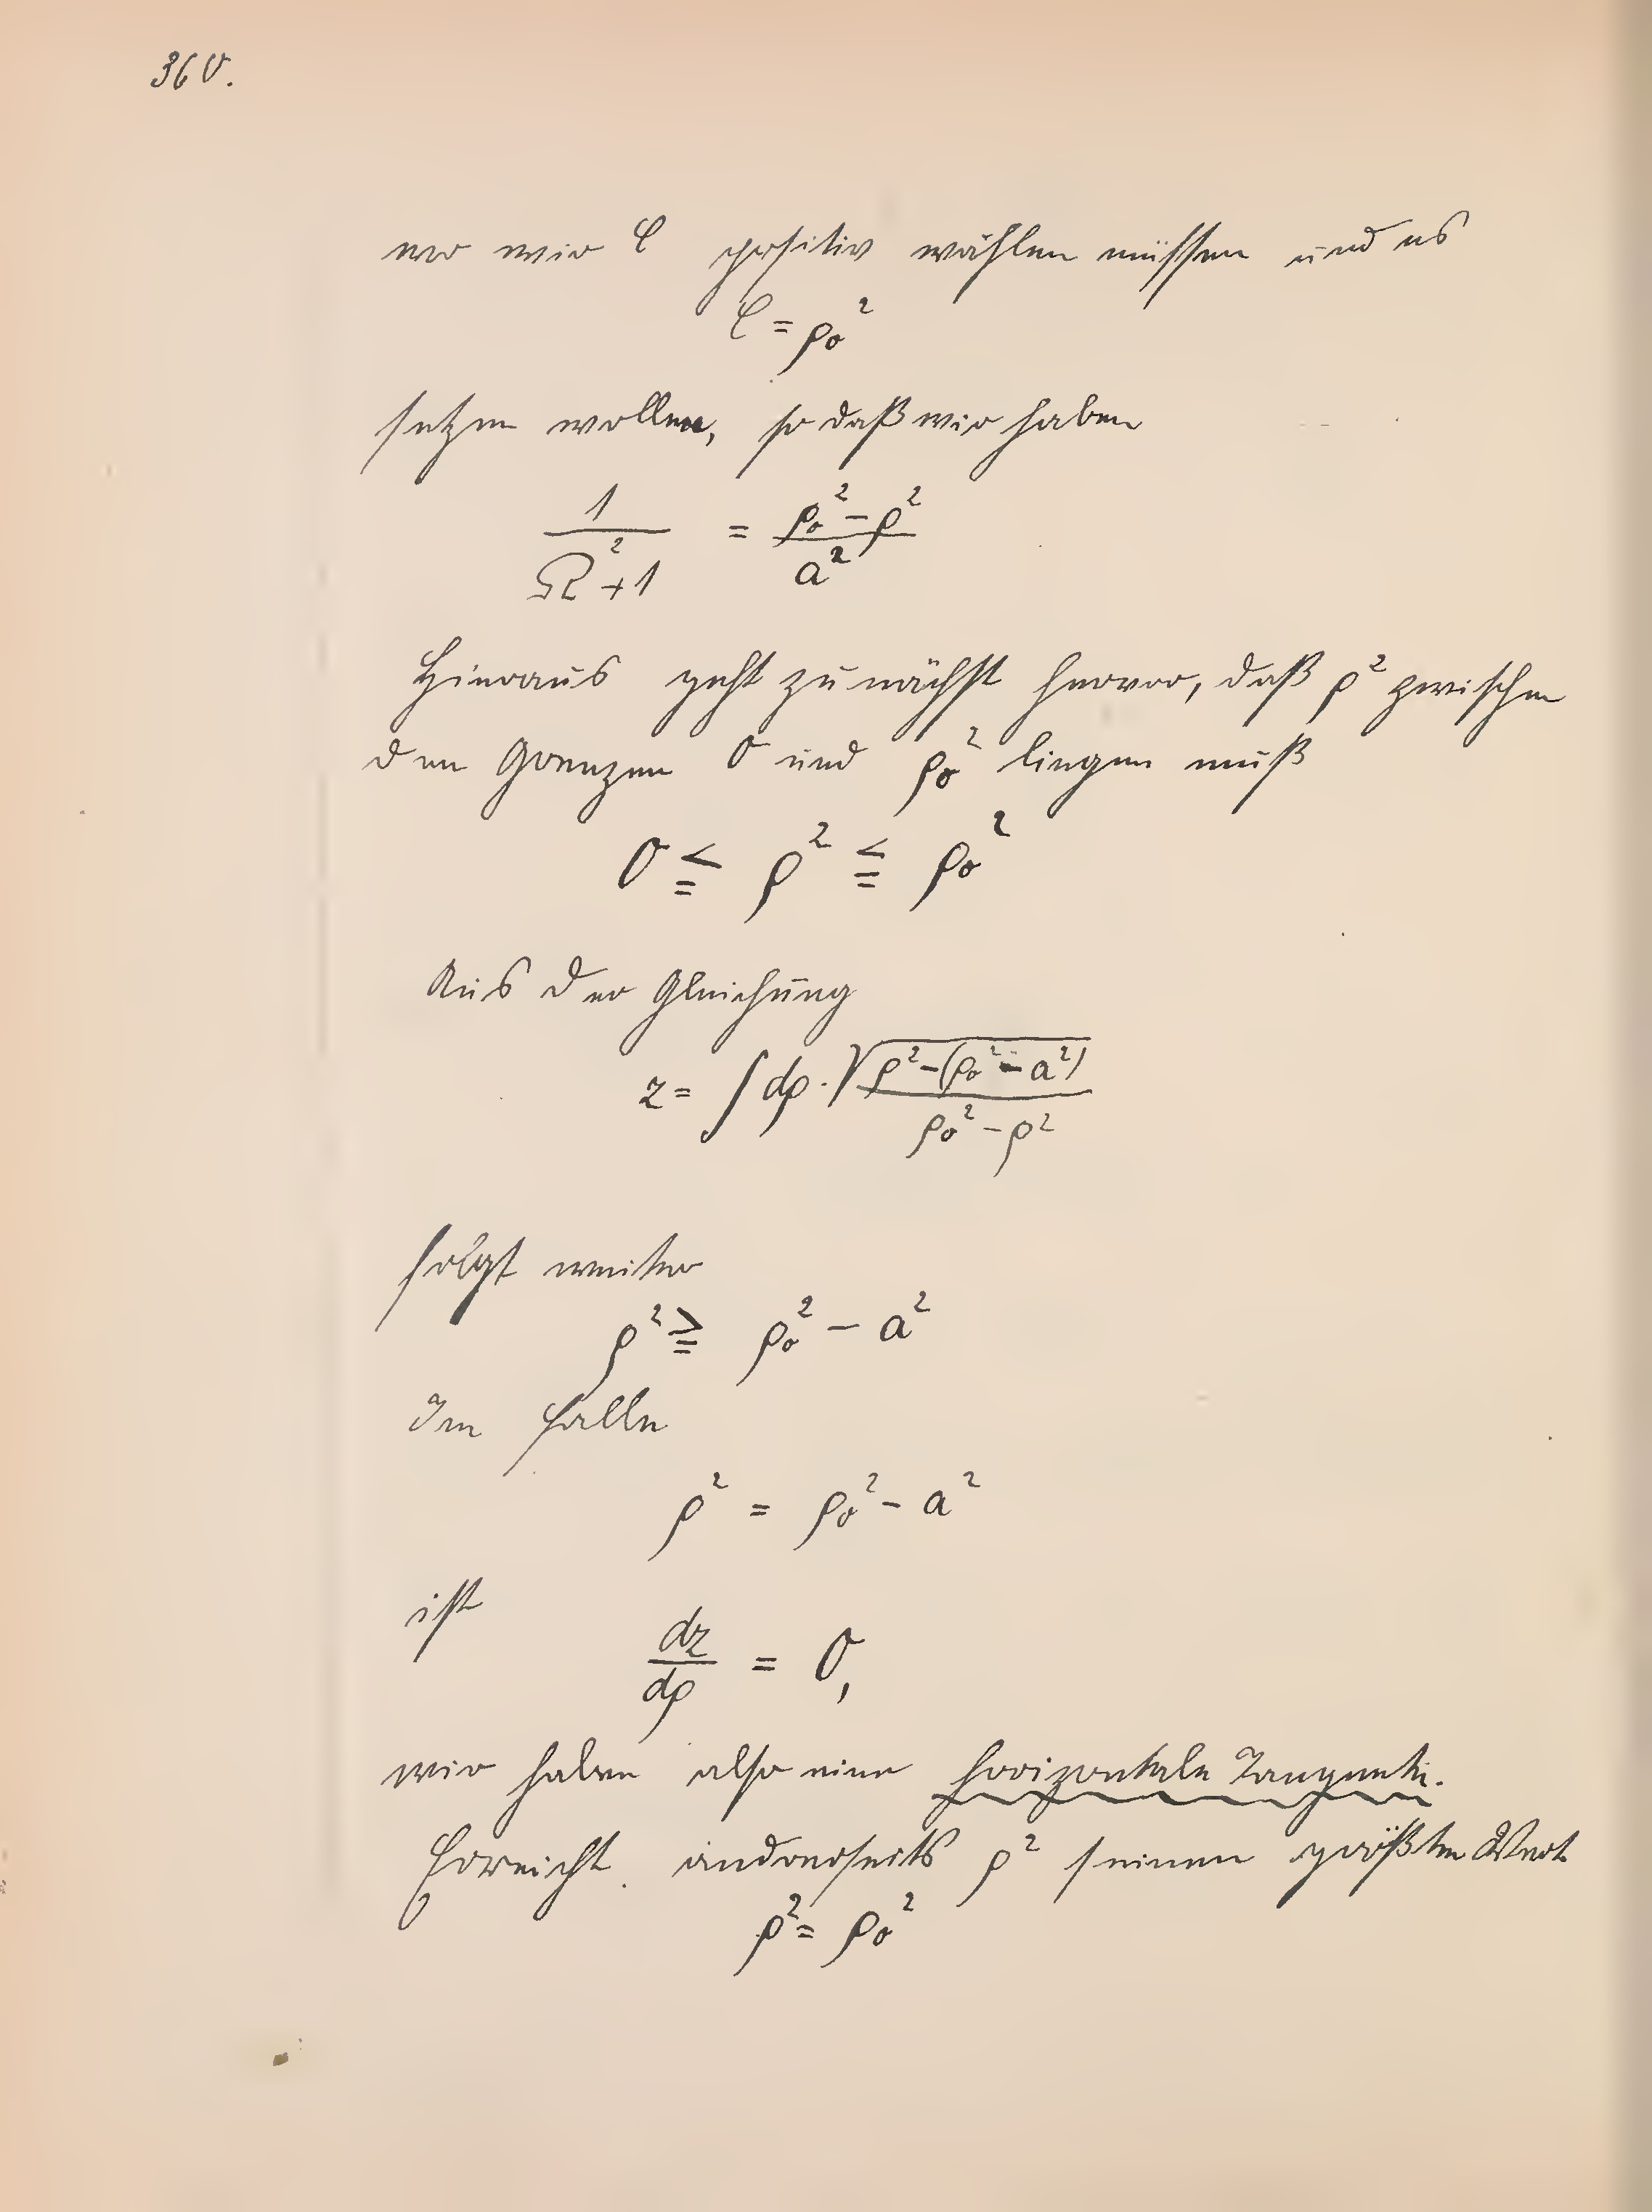 360.
wo wir C positiv wählen müssen und es
C = ρ₀²
setzen wollen, so daß wir haben
1/(Ω²+1) = (ρ₀²-ρ²)/a²
Hieraus geht zunächst hervor, daß ρ² zwischen
den Grenzen 0 und ρ₀² liegen muß
0 ≦ ρ² ≦ ρ₀²
Aus der Gleichung
z = ∫ dρ · √((ρ²-(ρ₀²-a²))/(ρ₀²-ρ²))
folgt weiter
ρ² ≧ ρ₀² - a²
Im Falle
ρ² = ρ₀² - a²
ist
dz/dρ = 0,
wir haben also eine horizontale Tangente.
Erreicht anderseits ρ² seinen größten Wert
ρ² = ρ₀²